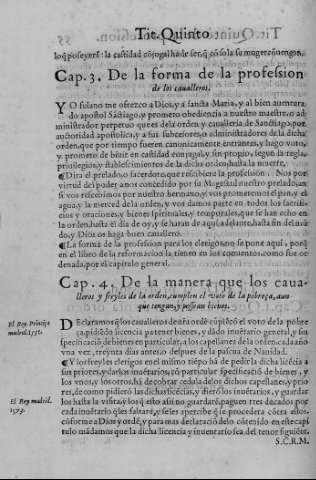 Tit. Quinto
lo q̃ poseyerẽ: la castidad cõjugal ha de ser, q̃ cõ solo la su muger cõuengan.
Cap. 3. De la forma de la profession
de los caualleros.
YO fulano me ofrezco a Dios, y a sancta Maria, y al bien auentura
do apostol Sãctiago, y prometo obediencia a nuestro maestre, o ad
ministrador perpetuo que es de la orden y caualleria de Sanctiago, por
auctoridad apostolica, y a sus subcesores, o administradores de la dicha
orden, que por tiempo fueren canonicamente entrantes, y hago voto,
y prometo de biuir en castidad conjugal, y sin propio, segun la regla,
preuilegios, y establescimientos de la dicha orden, hasta la muerte.
¶ Dira el prelado, o sacerdote, que rescibiere la profession. Nos por
virtud del poder a nos concedido por su Magestad nuestro prelado, an
si vos rescebimos por nuestro hermano, y vos prometemos el pan, y el
agua, y la merced de la orden, y vos damos parte en todos los sacrifi-
cios y oraciones, y bienes spirituales, y temporales, que se han echo en
la orden, hasta el dia de oy, y se haran de aqui adelante, hasta fin del mũ
do, y Dios os haga buen cauallero.
¶ La forma de la profession para los clerigos no se pone aqui, porq̃
en el libro de la reformacion la tienen en como conuiene, como fue or
denada, por el capitulo general.
Cap. 4. De la manera que los caua-
lleros y freyles de la orden, cumplen el voto de la pobreza, aun
que tengan, y posean bienes.
El Rey. Principe
madrid. 1551.
DEclaramos q̃ los caualleros desta ordẽ cũplirã el voto de la pobre
ça, pidiẽdo licencia pa tener bienes, y dãdo inuẽtario general, y sin
specificaciõ particular de bienes, a los capellanes de la orden, cada año
vna vez, treynta dias antes, o despues de la pascua de Nauidad.
¶ Y los freyles clerigos en el mismo tiẽpo há de pedir la dicha licẽcia a
sus priores, y darlas inuẽtarios, cõ particular specificaciõ de bienes, y
los vnos, y los otros, hã de cobrar cedula delos dichos capellanes, y prio
El Rey madrid.
1573.
res, de como pidierõ las dichas licẽcias, y dierõ los inuẽtarios, y guardar
los hasta la visita, y los q̃ esto assi no guardarẽ, paguen tres ducados por
cada inuẽtario q̃ les faltare, y se les apercibe q̃ se procedera cõtra estos.
cõforme a Dios y ordẽ, y para mas declaraciõ delo cõtenido en este capi
tulo mãdamos que la dicha licencia y inuentario sea del tenor siguiẽte.
S.C.R.M.